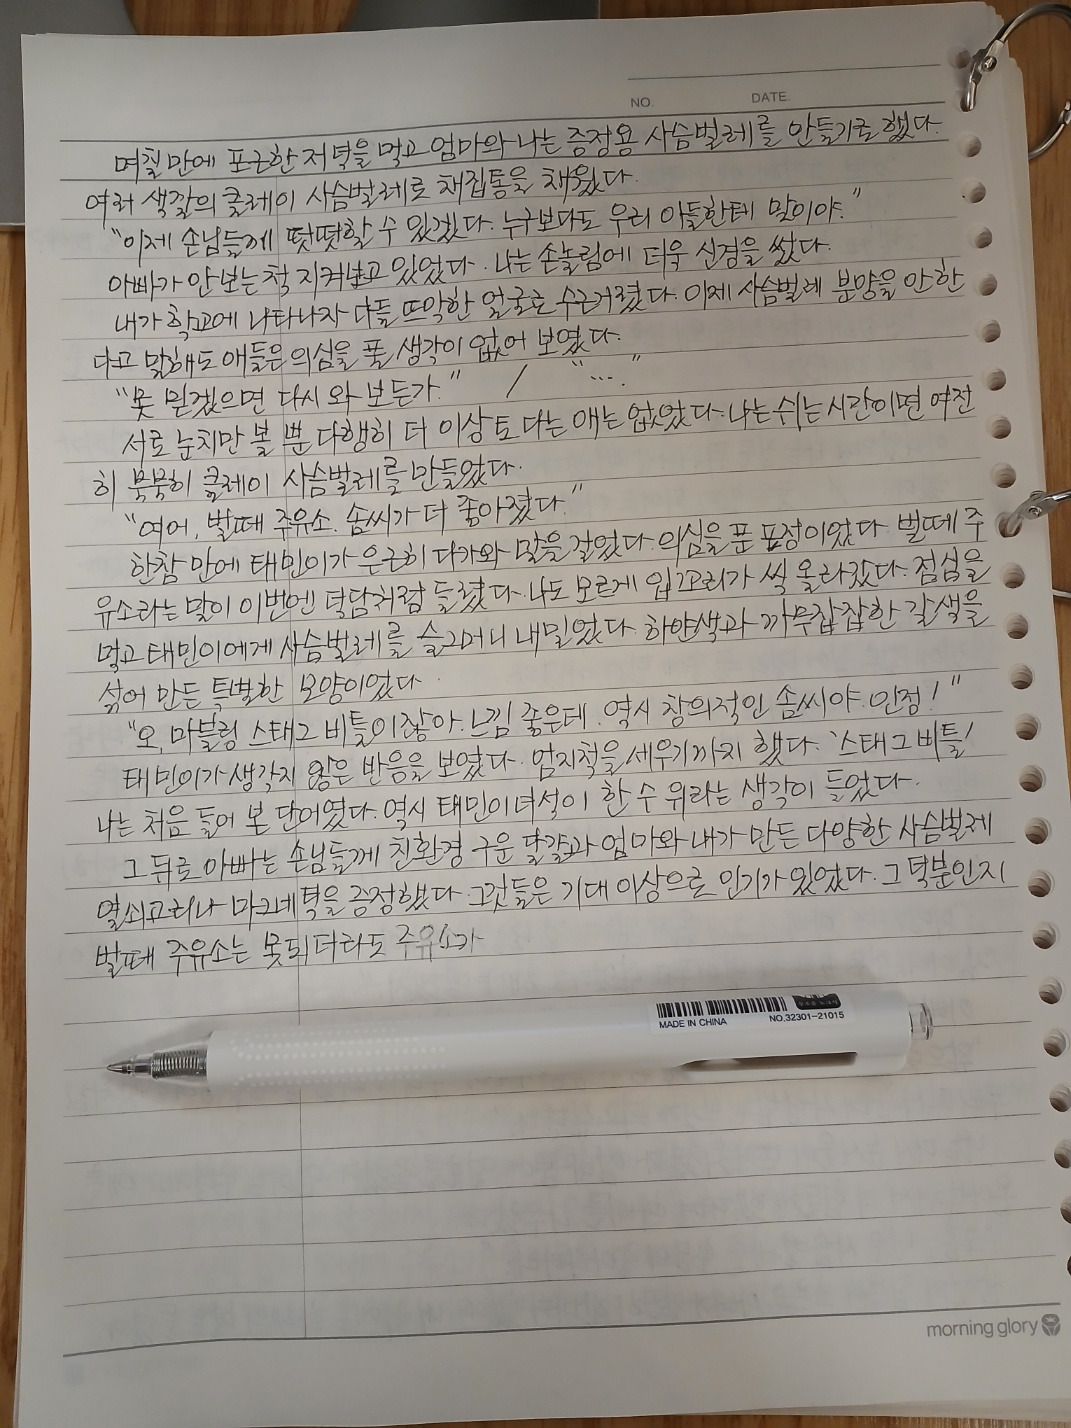 NO. DATE.
며칠 만에 포근한 저녁을 먹고 엄마와 나는 증정용 사슴벌레를 만들기로 했다.
여러 색깔의 클레이 사슴벌레로 채집통을 채웠다.
"이제 손님들께 떳떳할 수 있겠다. 누구보다도 우리 아들한테 말이야."
아빠가 안 보는 척 지켜보고 있었다. 나는 손놀림에 더욱 신경을 썼다.
내가 학교에 나타나자 다들 뜨악한 얼굴로 수근거렸다. 이제 사슴벌레 분양을 안 한
다고 말해도 애들은 의심을 풀 생각이 없어 보였다.
"못 믿겠으면 다시 와 보든가." / "…."
서로 눈치만 볼 뿐 다행히 더 이상 토 다는 애는 없었다. 나는 쉬는 시간이면 여전
히 묵묵히 클레이 사슴벌레를 만들었다.
"여어, 벌떼 주유소. 솜씨가 더 좋아졌다."
한참 만에 태민이가 은근히 다가와 말을 걸었다. 의심을 푼 표정이었다. 벌떼 주
유소라는 말이 이번엔 덕담처럼 들렸다. 나도 모르게 입꼬리가 씩 올라갔다. 점심을
먹고 태민이에게 사슴벌레를 슬그머니 내밀었다. 하얀색과 까무잡잡한 갈색을
섞어 만든 특별한 모양이었다.
"오, 마블링 스태그 비틀이잖아. 느낌 좋은데. 역시 창의적인 솜씨야. 인정!"
태민이가 생각지 않은 반응을 보였다. 엄지척을 세우기까지 했다. '스태그 비틀'
나는 처음 들어 본 단어였다. 역시 태민이 녀석이 한 수 위라는 생각이 들었다.
그 뒤로 아빠는 손님들께 친환경 구운 달걀과 엄마와 내가 만든 다양한 사슴벌레
열쇠고리나 마그네틱을 증정했다. 그것들은 기대 이상으로 인기가 있었다. 그 덕분인지
벌떼 주유소는 못되더라도 주유소가
MADE IN CHINA NO.32301-21015
morning glory